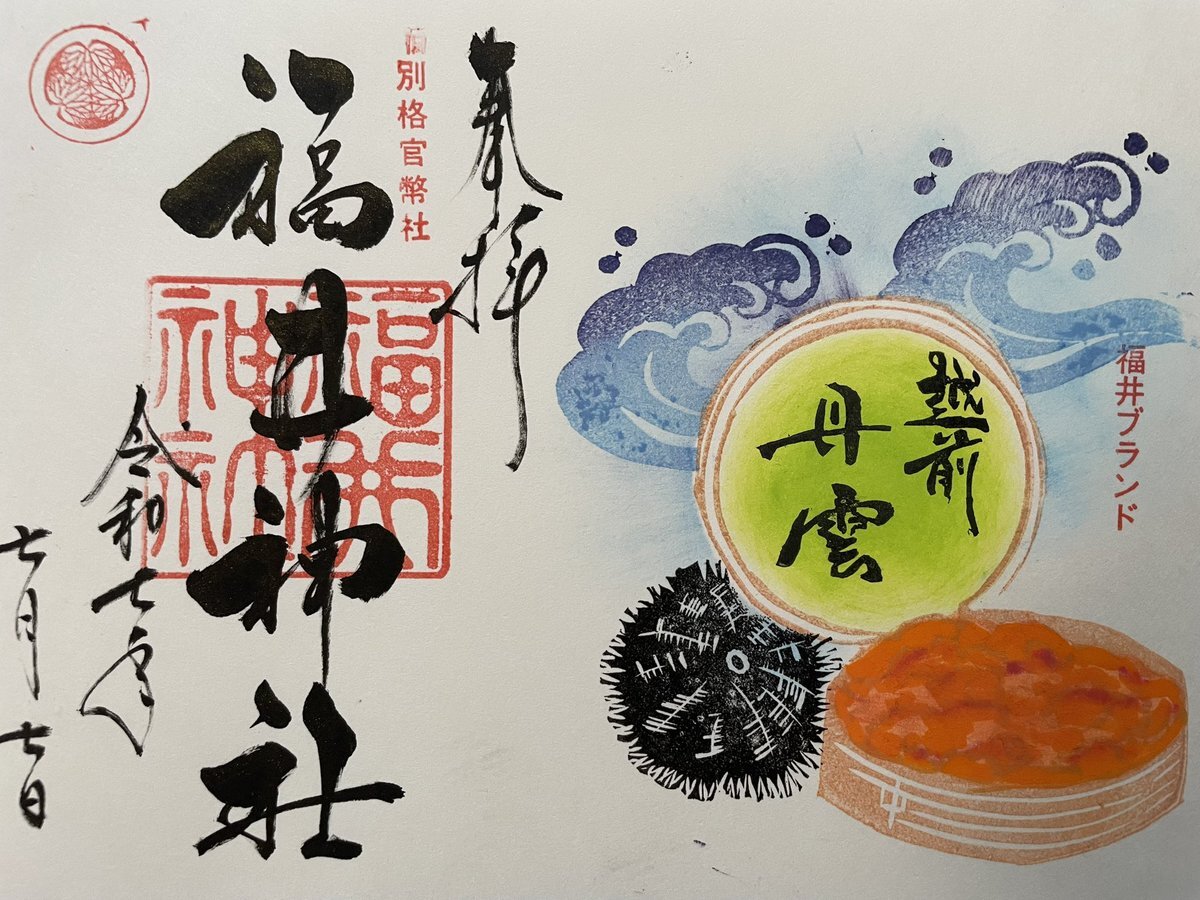 福井ブランド
越前
丹雲
奉拝
別格官幣社
福井神社
令和七年
七月七日